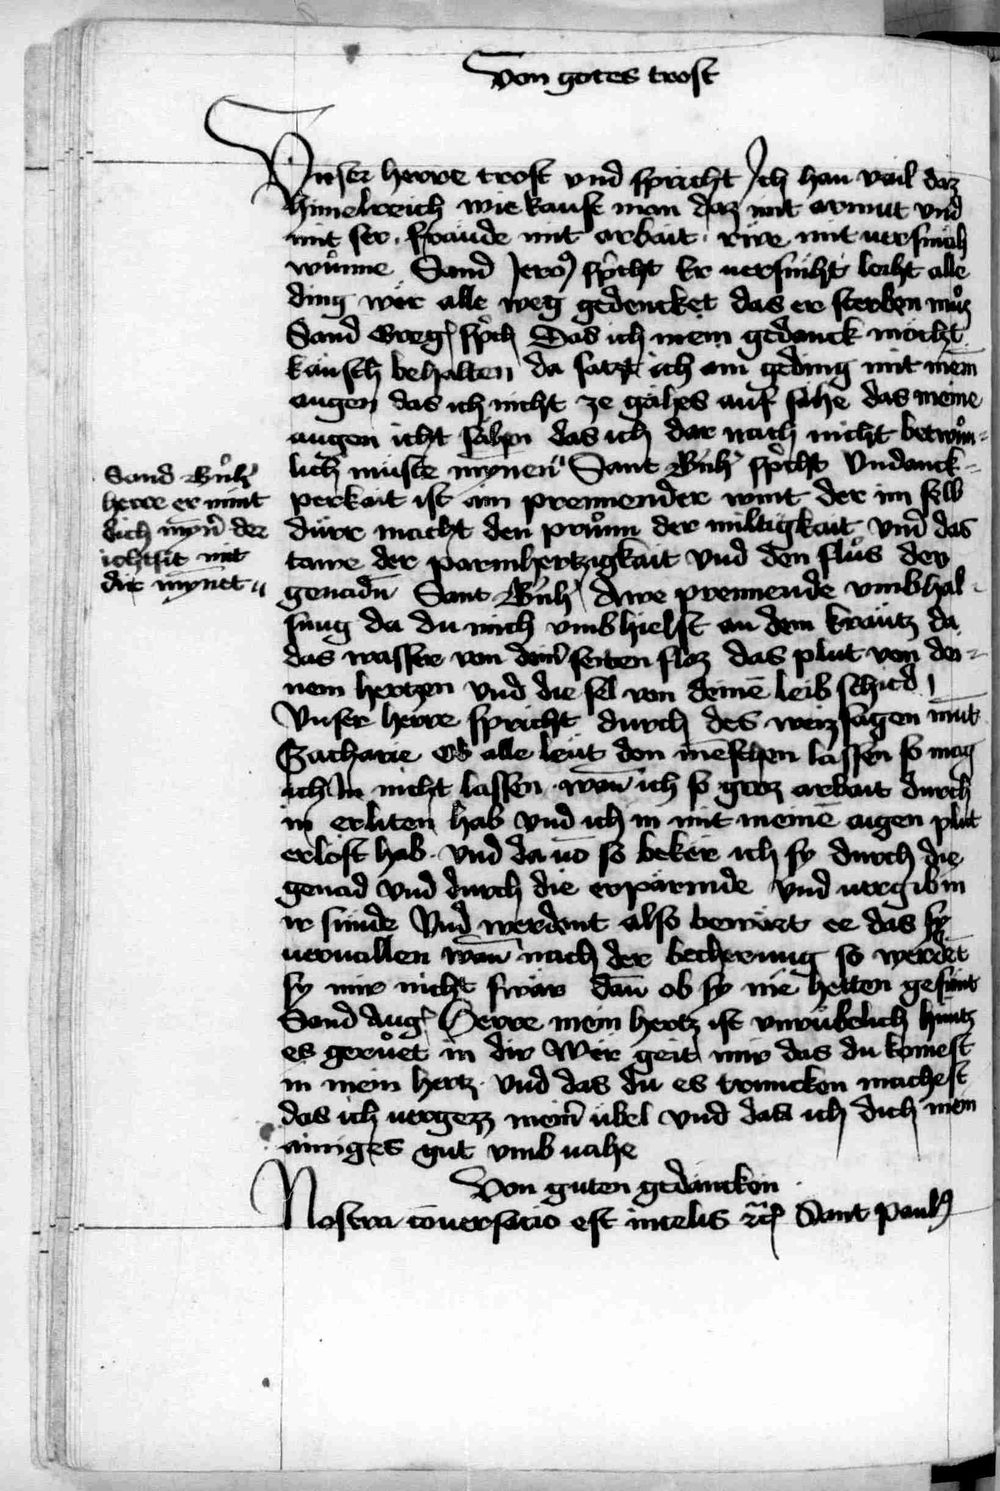 Von gotes trost
Vnser herre trost vnd spricht Ich han vail daz
himelreich wie kauft man daz mit armut vnd
mit ser · fräude mit arbait · rwe mit versmäh
wunne Sand Jero) spͥcht Er versmiht leiht alle
ding wer alle weg gedencket das er sterben můz
Sand Greg) spͥch Das ich mein gedanck möcht
käusch behalten da satzt ich ain geding mit mein̄
augen das ich nicht ze gähes auf sähe das meine
augen icht sähen das ich dar nach nicht betwůn-
lich müste mynen" Sant Bnh' spͥcht Vndanck-
perkait ist ain prennender wint der im selb
dürr macht den průnn der miltigkait vnd das
tawe der parmhertzigkait vnd den flůs der
genadn̄ Sant Bnh' Awe prennende vmbhal-
sung da du mich vmbhielst an dem kräutz da
das wasser von dein̄ seiten floz das plut von dei-
nem hertzen vnd die sel von deinē leib schied
Vnser herre spricht durch des weizsagen mut
Zacharie Ob alle leut den mēschen lassen so mag
ich In nicht lassen · wan̄ ich so groz arbait durch
in erliten hab vnd ich in mit meinē aigen plut
erlöst hab · vnd da vō so beker ich sy durch die
genad vnd durch die erpärmde vnd vergib in
ir sünde Vnd werdent also bewärt ee das sy
vervallen wan̄ nach der becherung so werdēt
sy mir nicht swär dan̄ ob sy nie hetten gesünt
Sand Aug) Herre mein hertz ist vnrůbelich huntz
es gerůet in dir Wer geit mir das du komest
in mein hertz · vnd das du es truncken machest
das ich vergezz mein̄ übel vnd das ich dich mein
ainiges gut vmbvahe
Von guten gedäncken
Nostra cōuersacio est in celis ꝛc̄ Sant Paul9
Sand Bnh'
herre er mint
dich myn̄ der
ichtsit mit
dir mynet "